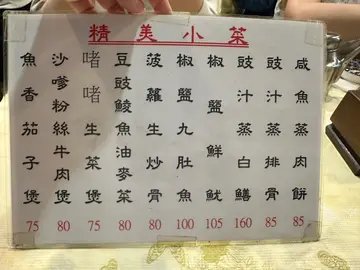 精美小菜
咸魚蒸肉餅 85
豉汁蒸排骨 85
豉汁蒸白鱔 160
椒鹽鮮魷 105
椒鹽九肚魚 100
菠蘿生炒骨 80
豆豉鯪魚油麥菜 80
啫啫生菜煲 75
沙嗲粉絲牛肉煲 80
魚香茄子煲 75